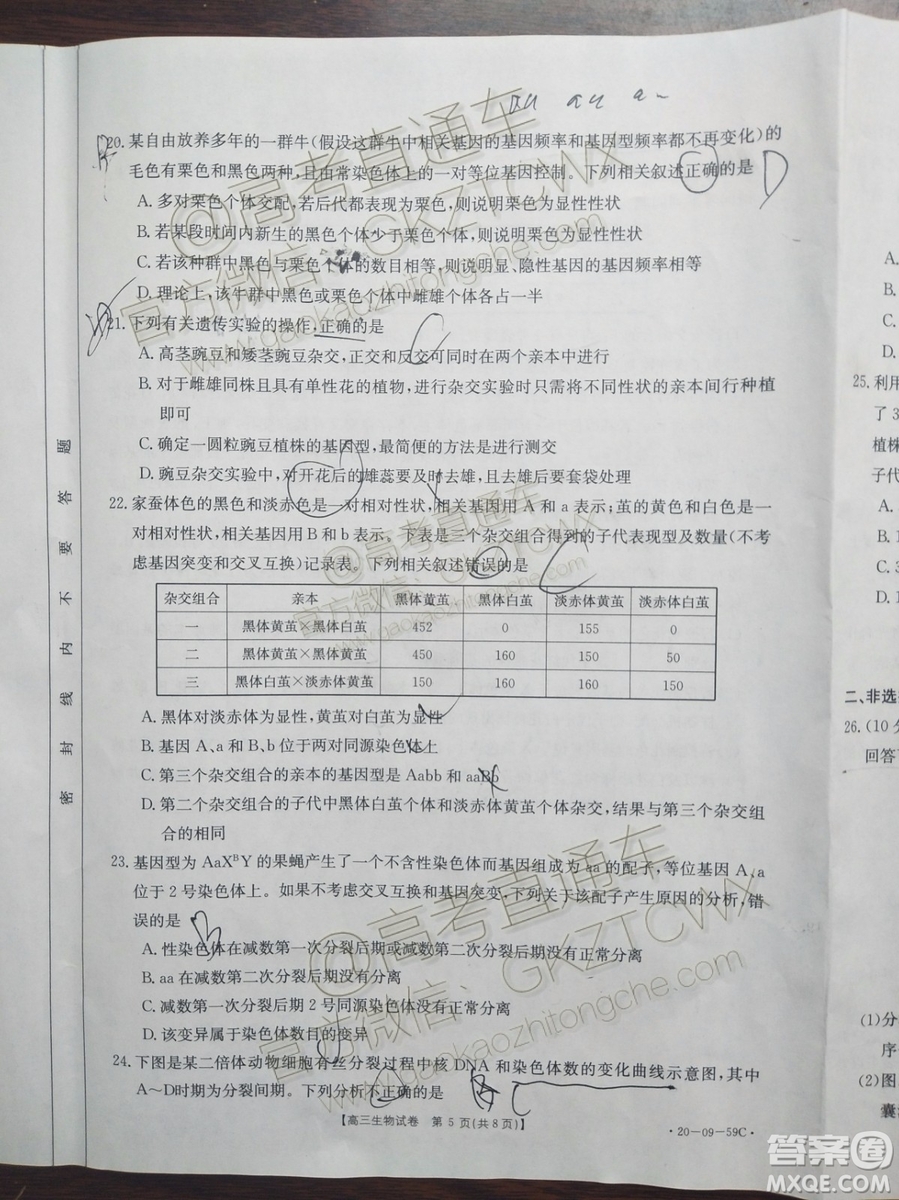 20. 某自由放养多年的一群牛(假设这群牛中相关基因的基因频率和基因型频率都不再变化)的
毛色有栗色和黑色两种,且由常染色体上的一对等位基因控制。下列相关叙述正确的是 D
A. 多对栗色个体交配,若后代都表现为栗色,则说明栗色为显性性状
B. 若某段时间内新生的黑色个体少于栗色个体,则说明栗色为显性性状
C. 若该种群中黑色与栗色个体的数目相等,则说明显、隐性基因的基因频率相等
D. 理论上,该牛群中黑色或栗色个体中雌雄个体各占一半
21. 下列有关遗传实验的操作,正确的是 C
A. 高茎豌豆和矮茎豌豆杂交,正交和反交可同时在两个亲本中进行
B. 对于雌雄同株且具有单性花的植物,进行杂交实验时只需将不同性状的亲本间行种植
即可
C. 确定一圆粒豌豆植株的基因型,最简便的方法是进行测交
D. 豌豆杂交实验中,对开花后的雄蕊要及时去雄,且去雄后要套袋处理
22. 家蚕体色的黑色和淡赤色是一对相对性状,相关基因用 A 和 a 表示;茧的黄色和白色是一
对相对性状,相关基因用 B 和 b 表示。下表是三个杂交组合得到的子代表现型及数量(不考
虑基因突变和交叉互换)记录表。下列相关叙述错误的是 C
杂交组合 亲本 黑体黄茧 黑体白茧 淡赤体黄茧 淡赤体白茧
一 黑体黄茧×黑体白茧 452 0 155 0
二 黑体黄茧×黑体黄茧 450 160 150 50
三 黑体白茧×淡赤体黄茧 150 160 160 150
A. 黑体对淡赤体为显性,黄茧对白茧为显性
B. 基因 A、a 和 B、b 位于两对同源染色体上
C. 第三个杂交组合的亲本的基因型是 Aabb 和 aaBb
D. 第二个杂交组合的子代中黑体白茧个体和淡赤体黄茧个体杂交,结果与第三个杂交组
合的相同
23. 基因型为 AaXᴮY 的果蝇产生了一个不含性染色体而基因组成为 aa 的配子,等位基因 A、a
位于 2 号染色体上。如果不考虑交叉互换和基因突变,下列关于该配子产生原因的分析,错
误的是
A. 性染色体在减数第一次分裂后期或减数第二次分裂后期没有正常分离
B. aa 在减数第二次分裂后期没有分离
C. 减数第一次分裂后期 2 号同源染色体没有正常分离
D. 该变异属于染色体数目的变异
24. 下图是某二倍体动物细胞有丝分裂过程中核 DNA 和染色体数的变化曲线示意图,其中
A～D时期为分裂间期。下列分析不正确的是 C
【高三生物试卷 第 5 页(共 8 页)】
·20-09-59C·
密 封 线 内 不 要 答 题
A.
B.
C.
D.
25. 利用
了 3
植株
子代
A.
B.
C.
D.
二、非选
26. (10 分
回答
(1)分
序
(2)图
囊
@高考直通车
官方微信：GKZTCWX
gaokaozhitongche.com
@高考直通车
官方微信：GKZTCWX
gaokaozhitongche.com
@高考直通车
官方微信：GKZTCWX
gaokaozhitongche.com
答案圈
MXQE.COM